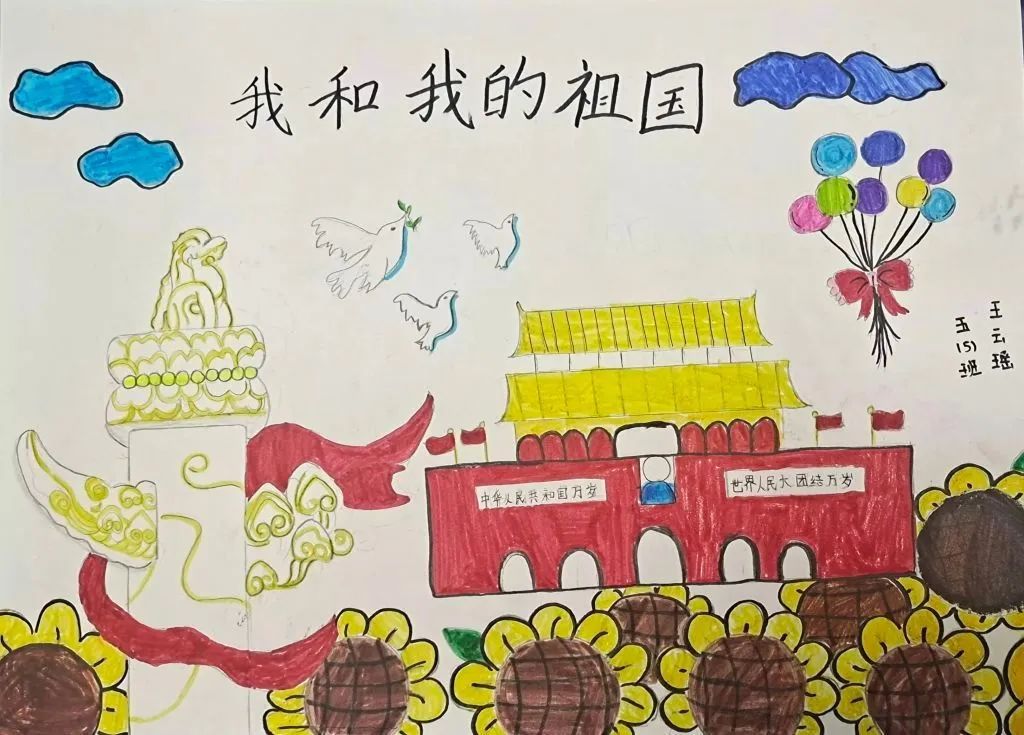 我和我的祖国
王云瑶
五(5)班
中华人民共和国万岁
世界人民大团结万岁